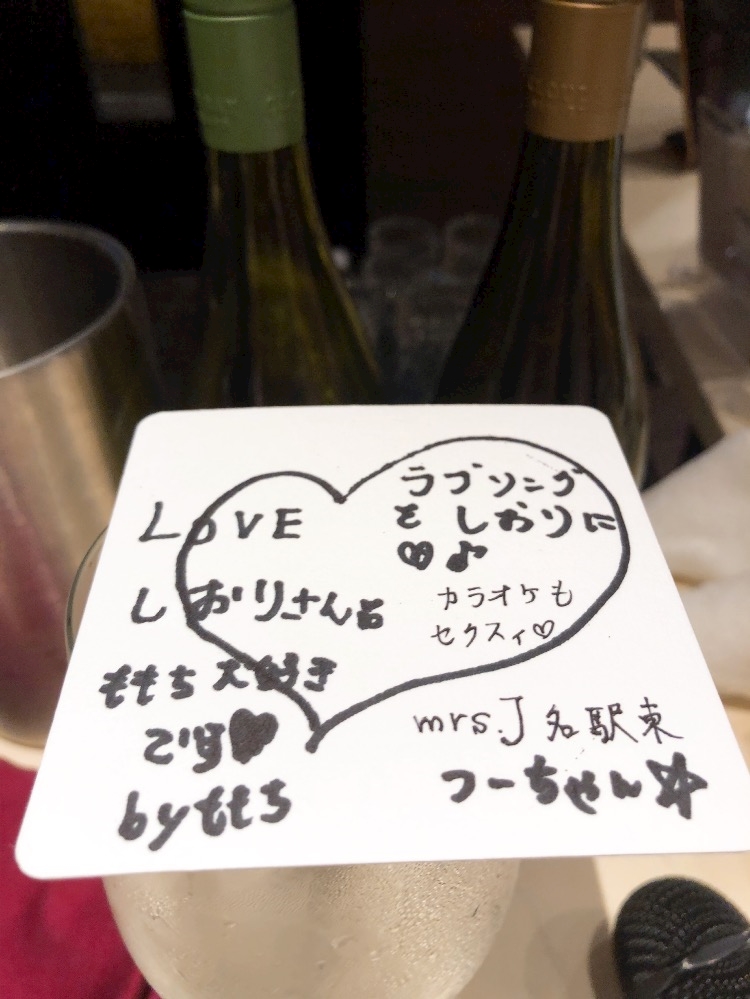 LOVE
しおりさん
ももち大好き
です♥
byももち
ラブソング
を しおりに
♡♪
カラオケも
セクスィ♡
mrs.J 名駅東
つーちゃん☆